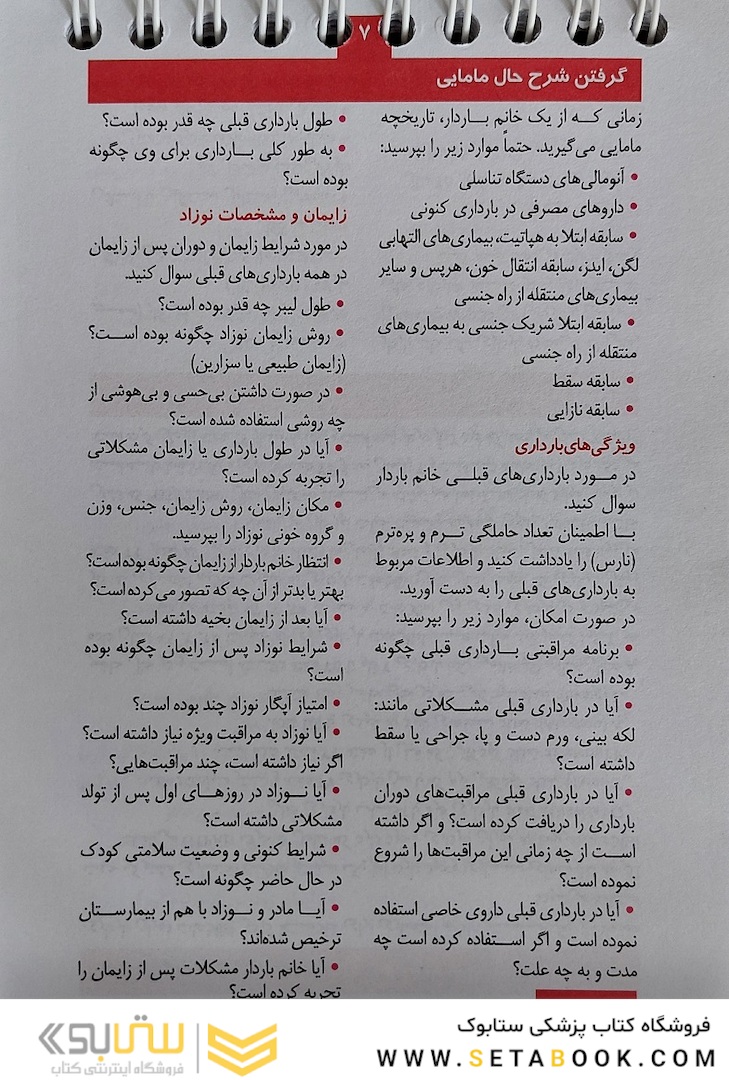 ۷
گرفتن شرح حال مامایی
زمانی که از یک خانم باردار، تاریخچه
مامایی می‌گیرید. حتماً موارد زیر را بپرسید:
• آنومالی‌های دستگاه تناسلی
• داروهای مصرفی در بارداری کنونی
• سابقه ابتلا به هپاتیت، بیماری‌های التهابی
لگن، ایدز، سابقه انتقال خون، هرپس و سایر
بیماری‌های منتقله از راه جنسی
• سابقه ابتلا شریک جنسی به بیماری‌های
منتقله از راه جنسی
• سابقه سقط
• سابقه نازایی
ویژگی‌های بارداری
در مورد بارداری‌های قبلی خانم باردار
سوال کنید.
با اطمینان تعداد حاملگی ترم و پره‌ترم
(نارس) را یادداشت کنید و اطلاعات مربوط
به بارداری‌های قبلی را به دست آورید.
در صورت امکان، موارد زیر را بپرسید:
• برنامه مراقبتی بارداری قبلی چگونه
بوده است؟
• آیا در بارداری قبلی مشکلاتی مانند:
لکه بینی، ورم دست و پا، جراحی یا سقط
داشته است؟
• آیا در بارداری قبلی مراقبت‌های دوران
بارداری را دریافت کرده است؟ و اگر داشته
است از چه زمانی این مراقبت‌ها را شروع
نموده است؟
• آیا در بارداری قبلی داروی خاصی استفاده
نموده است و اگر استفاده کرده است چه
مدت و به چه علت؟
• طول بارداری قبلی چه قدر بوده است؟
• به طور کلی بارداری برای وی چگونه
بوده است؟
زایمان و مشخصات نوزاد
در مورد شرایط زایمان و دوران پس از زایمان
در همه بارداری‌های قبلی سوال کنید.
• طول لیبر چه قدر بوده است؟
• روش زایمان نوزاد چگونه بوده است؟
(زایمان طبیعی یا سزارین)
• در صورت داشتن بی‌حسی و بی‌هوشی از
چه روشی استفاده شده است؟
• آیا در طول بارداری یا زایمان مشکلاتی
را تجربه کرده است؟
• مکان زایمان، روش زایمان، جنس، وزن
و گروه خونی نوزاد را بپرسید.
• انتظار خانم باردار از زایمان چگونه بوده است؟
بهتر یا بدتر از آن چه که تصور می‌کرده است؟
• آیا بعد از زایمان بخیه داشته است؟
• شرایط نوزاد پس از زایمان چگونه بوده
است؟
• امتیاز آپگار نوزاد چند بوده است؟
• آیا نوزاد به مراقبت ویژه نیاز داشته است؟
اگر نیاز داشته است، چند مراقبت‌هایی؟
• آیا نوزاد در روزهای اول پس از تولد
مشکلاتی داشته است؟
• شرایط کنونی و وضعیت سلامتی کودک
در حال حاضر چگونه است؟
• آیا مادر و نوزاد با هم از بیمارستان
ترخیص شده‌اند؟
• آیا خانم باردار مشکلات پس از زایمان را
تجربه کرده است؟
فروشگاه کتاب پزشکی ستابوک
WWW.SETABOOK.COM
ستابوک
فروشگاه اینترنتی کتاب